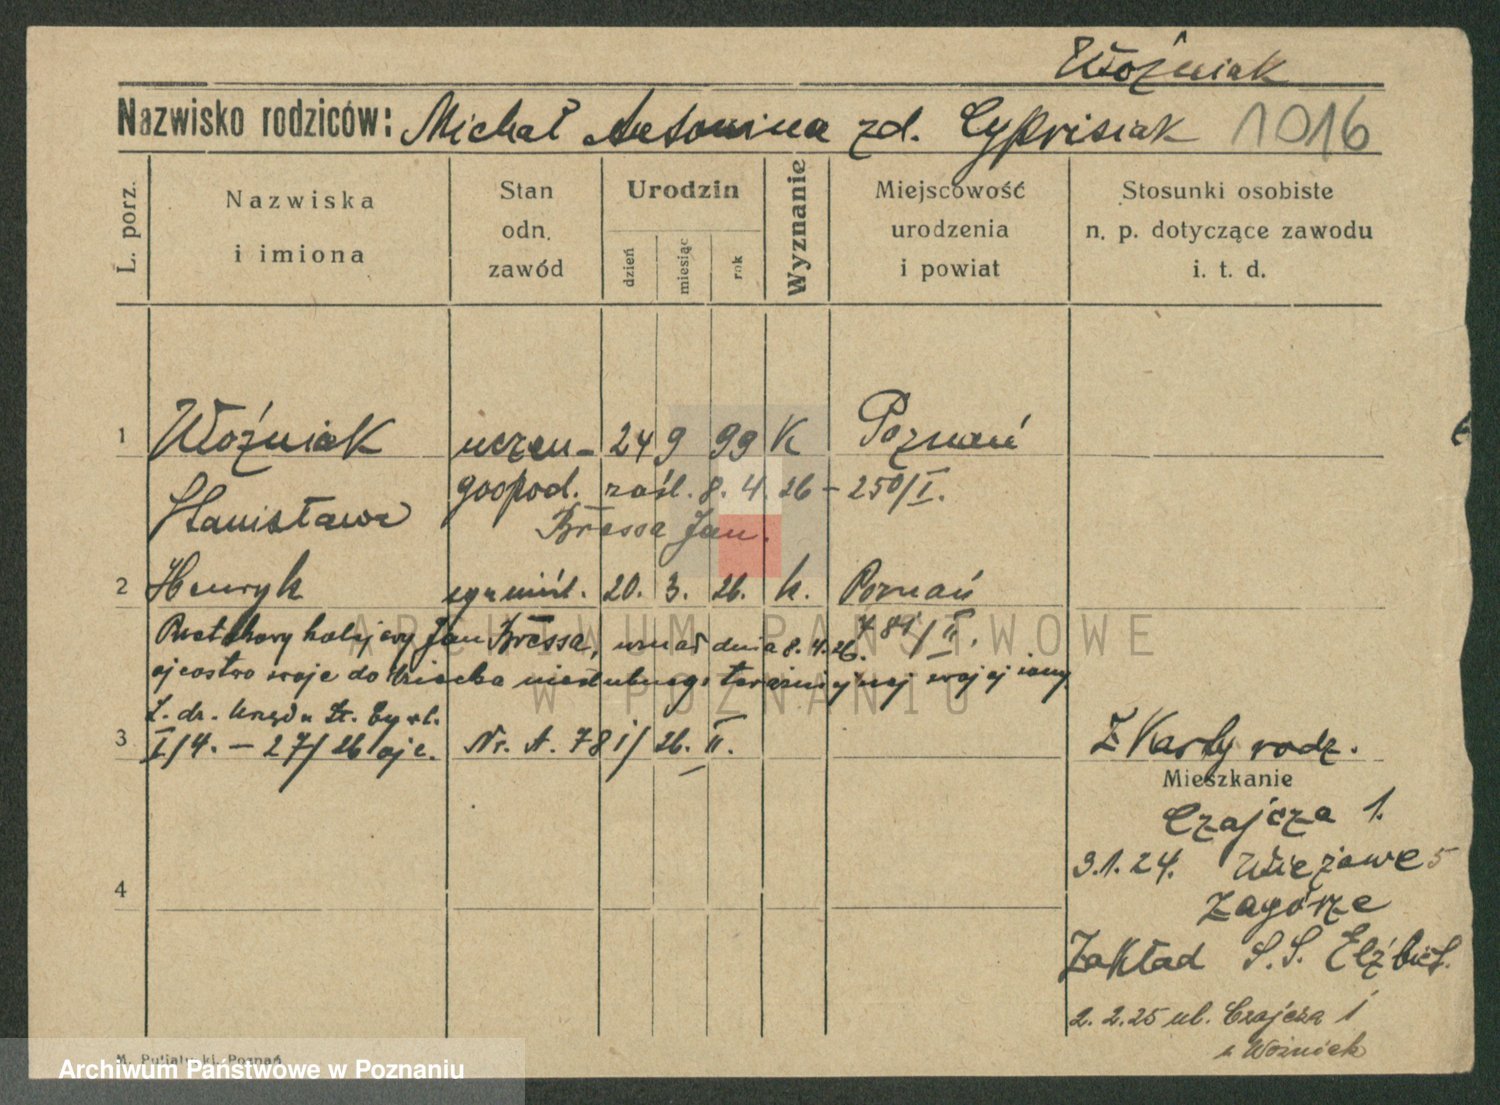 Woźniak
Nazwisko rodziców: Michał Antonina zd. Cyprisiak 1016
L. porz.
Nazwiska i imiona
Stan odn. zawód
Urodzin
dzień
miesiąc
rok
Wyznanie
Miejscowość urodzenia i powiat
Stosunki osobiste n. p. dotyczące zawodu i. t. d.
1 Woźniak uczen- 24 9 99 K Poznań
Stanisława gospod. zaśl. 8. 4. 26 - 250/I.
Bressa Jan.
2 Henryk 20. 3. 26. k. Poznań
kolejowy Jan Bressa, uznał dnia 8. 4. 26. 781/II.
ojcostwo swoje do dziecka nieślubnego terazniejszej swojej żony
3 I/4. - 27/26 ojc. Nr. A. 781/26. II.
Z Karty rodz.
Mieszkanie
Czajcza 1.
3.1.24. Wieżowe 5
Zagórze
Zakład S.S. Elżbiet.
4
2. 2. 25 ul. Czajcza 1
u Woźniak
ARCHIWUM PAŃSTWOWE
W POZNANIU
M. Putiatycki, Poznań
Archiwum Państwowe w Poznaniu